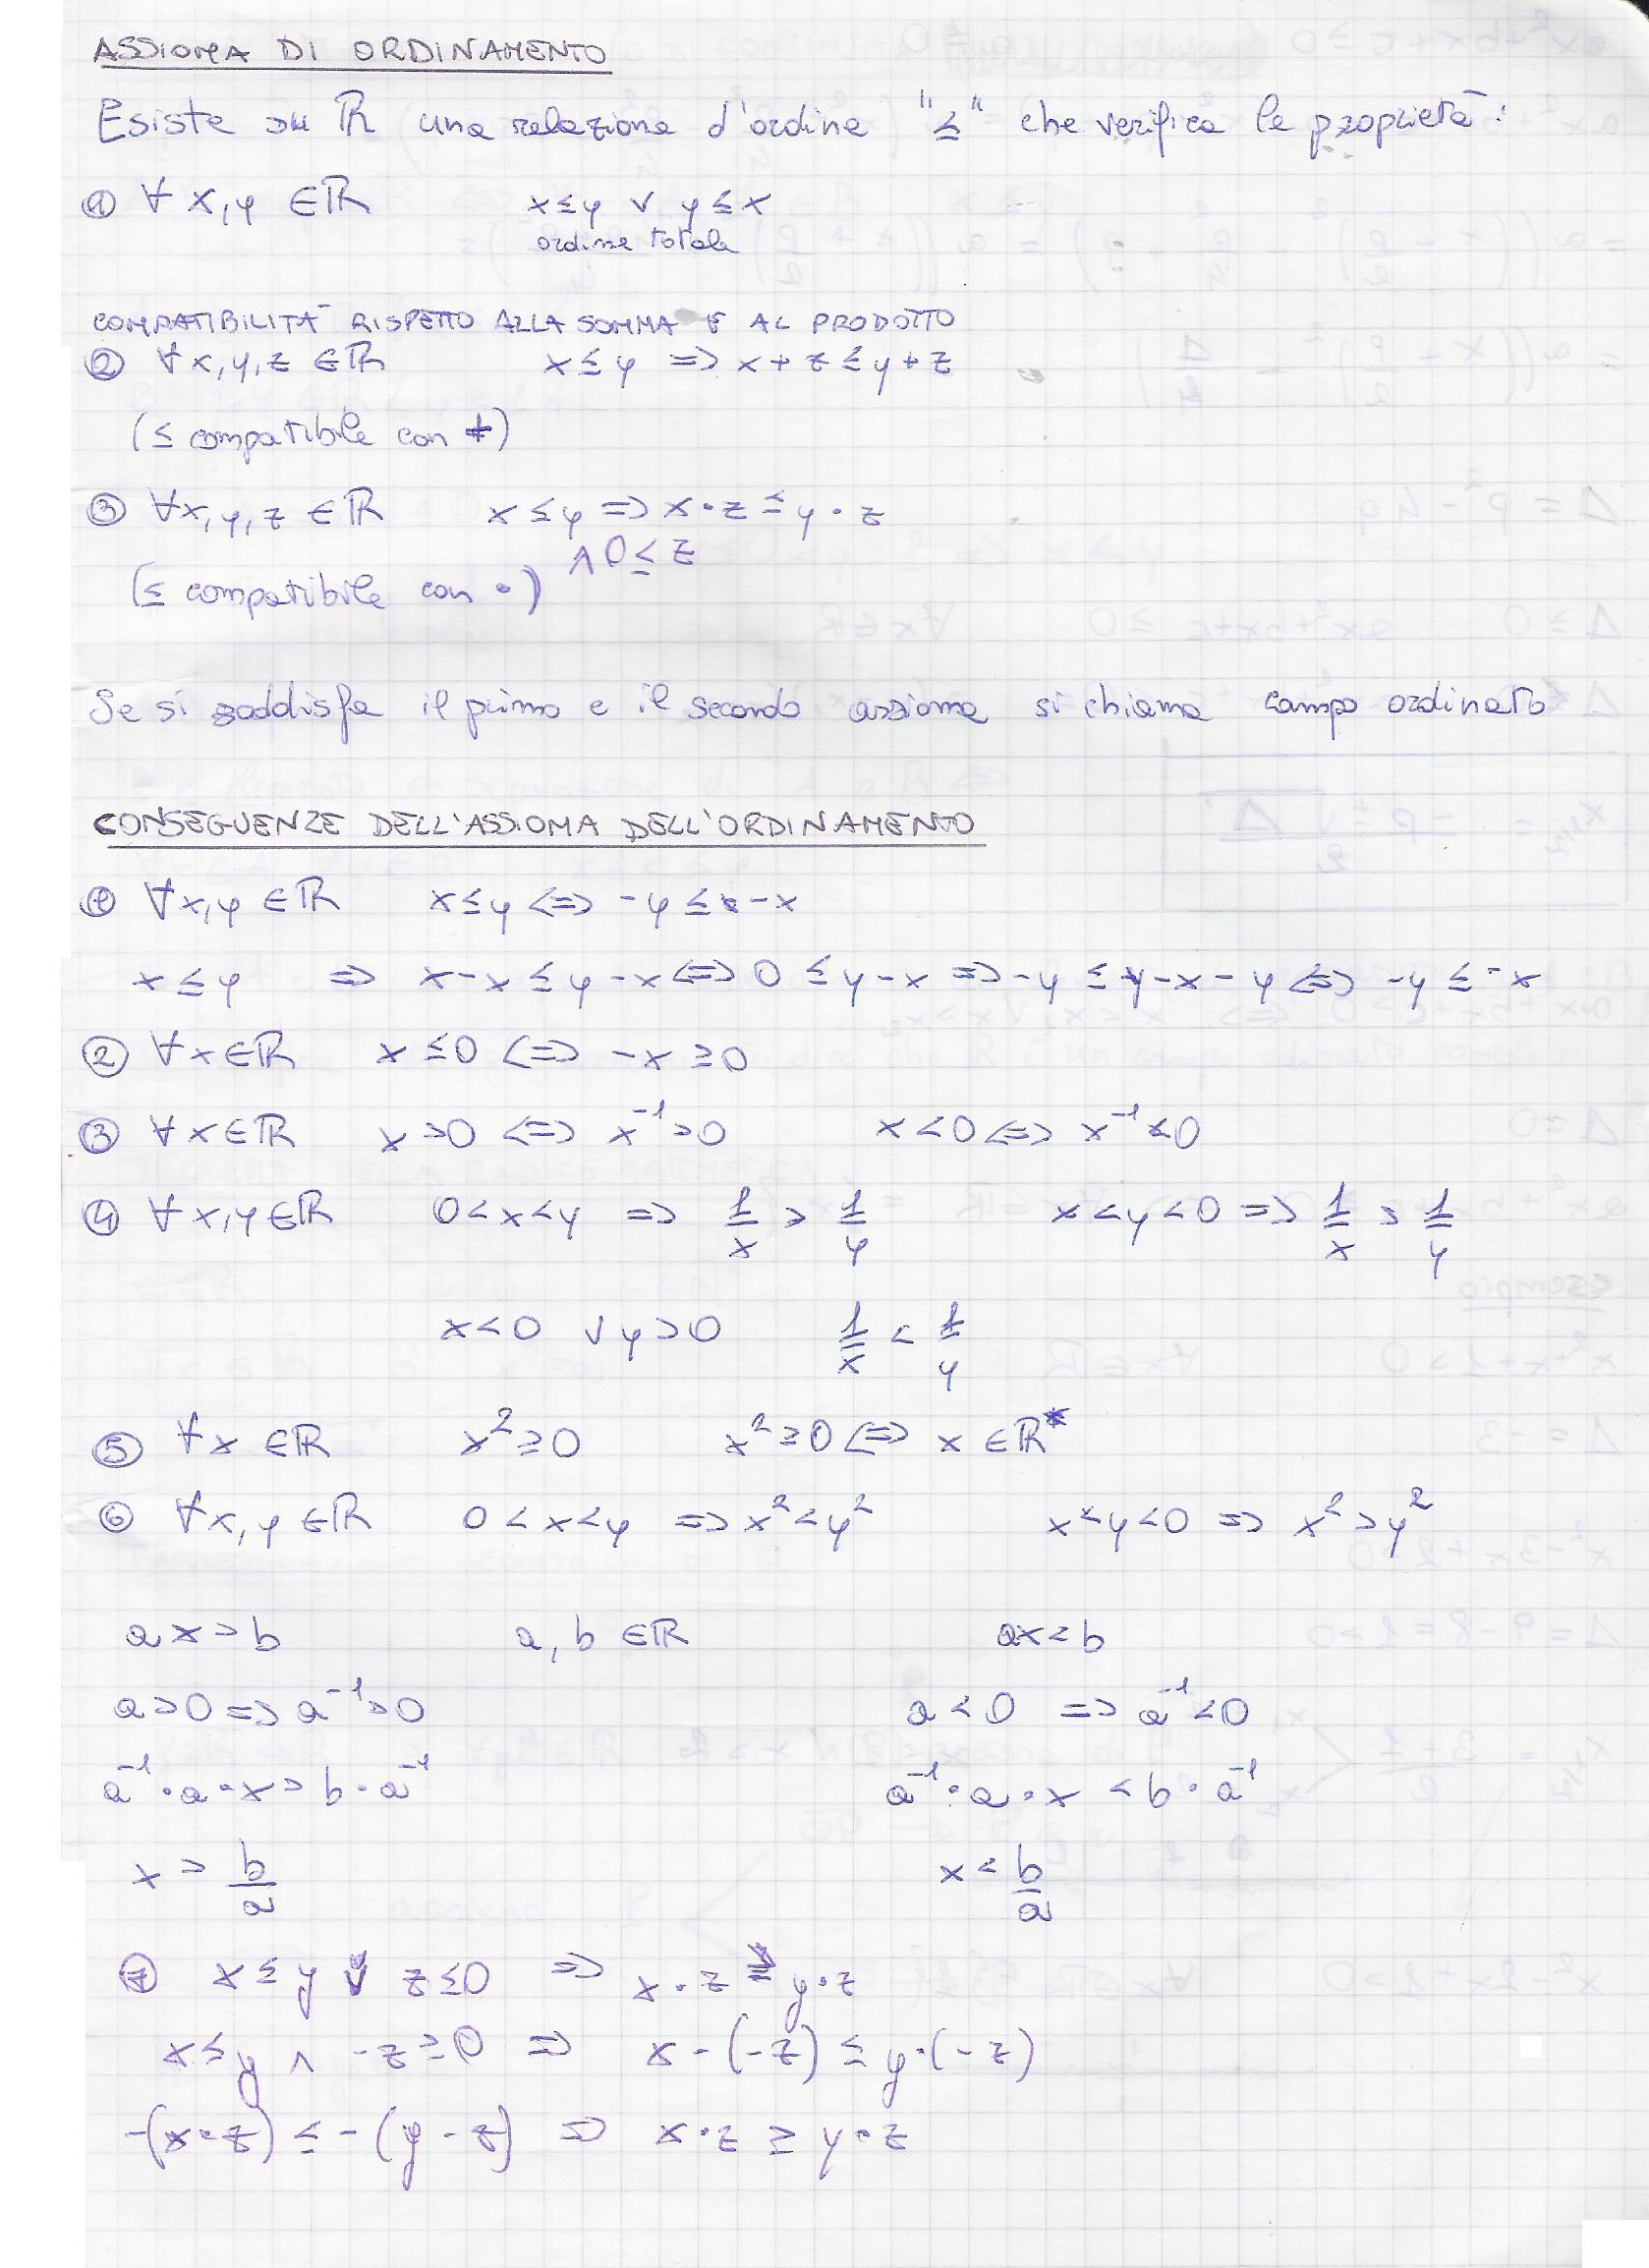 ASSIOMA DI ORDINAMENTO
Esiste su ℝ una relazione d'ordine "≤" che verifica le proprietà:
① ∀ x,y ∈ℝ x≤y ∨ y≤x
ordine totale
COMPATIBILITÀ RISPETTO ALLA SOMMA E AL PRODOTTO
② ∀x,y,z ∈ℝ x≤y => x+z≤y+z
(≤ compatibile con +)
③ ∀x,y,z ∈ℝ x≤y => x·z≤y·z
∧ 0≤z
(≤ compatibile con ·)
Se si soddisfa il primo e il secondo assioma si chiama campo ordinato
CONSEGUENZE DELL'ASSIOMA DELL'ORDINAMENTO
① ∀x,y ∈ℝ x≤y <=> -y≤-x
x≤y => x-x≤y-x <=> 0≤y-x => -y≤y-x-y <=> -y≤-x
② ∀x∈ℝ x≤0 <=> -x≥0
③ ∀x∈ℝ x>0 <=> x⁻¹>0 x<0 <=> x⁻¹<0
④ ∀x,y∈ℝ 0<x<y => 1/x > 1/y x<y<0 => 1/x > 1/y
x<0 ∨ y>0 1/x < 1/y
⑤ ∀x ∈ℝ x²≥0 x²≥0 <=> x ∈ℝ*
⑥ ∀x,y ∈ℝ 0<x<y => x²<y² x<y<0 => x²>y²
ax>b a,b ∈ℝ ax<b
a>0 => a⁻¹>0 a<0 => a⁻¹<0
a⁻¹·a·x>b·a⁻¹ a⁻¹·a·x<b·a⁻¹
x > b/a x < b/a
⑦ x≤y ∨ z≤0 => x·z≥y·z
x≤y ∧ -z≥0 => x·(-z)≤y·(-z)
-(x·z)≤-(y·z) => x·z≥y·z